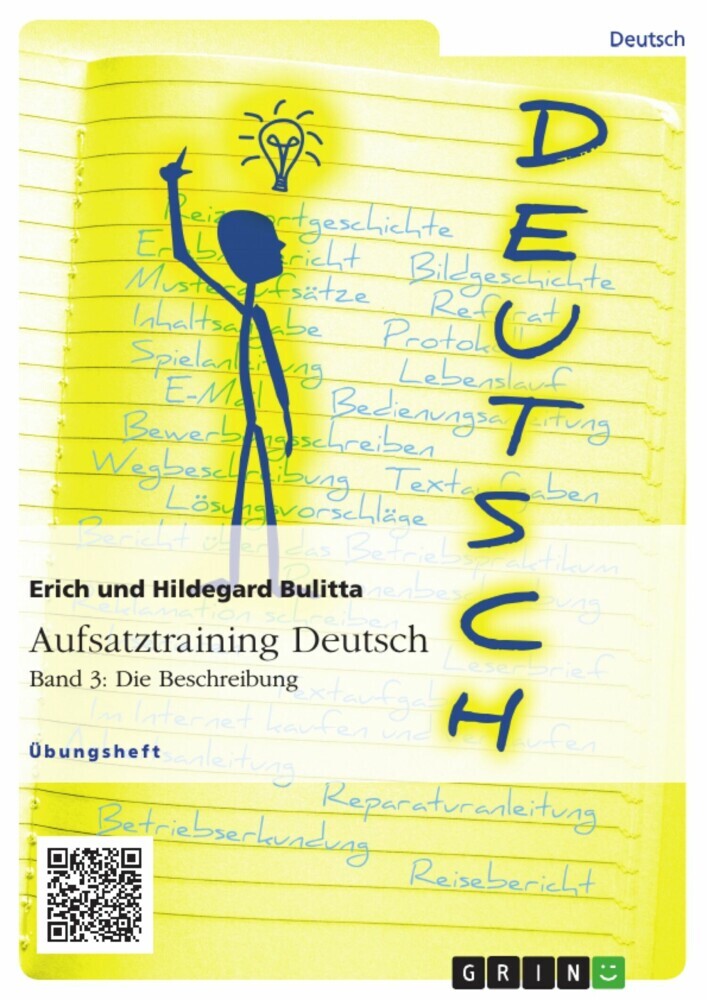 Deutsch
DEUTSCH
Reizwortgeschichte
Bildgeschichte
Musteraufsätze
Referat
Inhaltsangabe
Protokoll
Spielanleitung
Lebenslauf
E-Mail
Bedienungsanleitung
Bewerbungsschreiben
Wegbeschreibung
Textaufgaben
Lösungsvorschläge
Bericht über das Betriebspraktikum
Personenbeschreibung
Erich und Hildegard Bulitta
Reklamation schreiben
Aufsatztraining Deutsch
Leserbrief
Band 3: Die Beschreibung
Im Internet kaufen und verkaufen
Übungsheft
Reparaturanleitung
Betriebserkundung
Reisebericht
GRIN